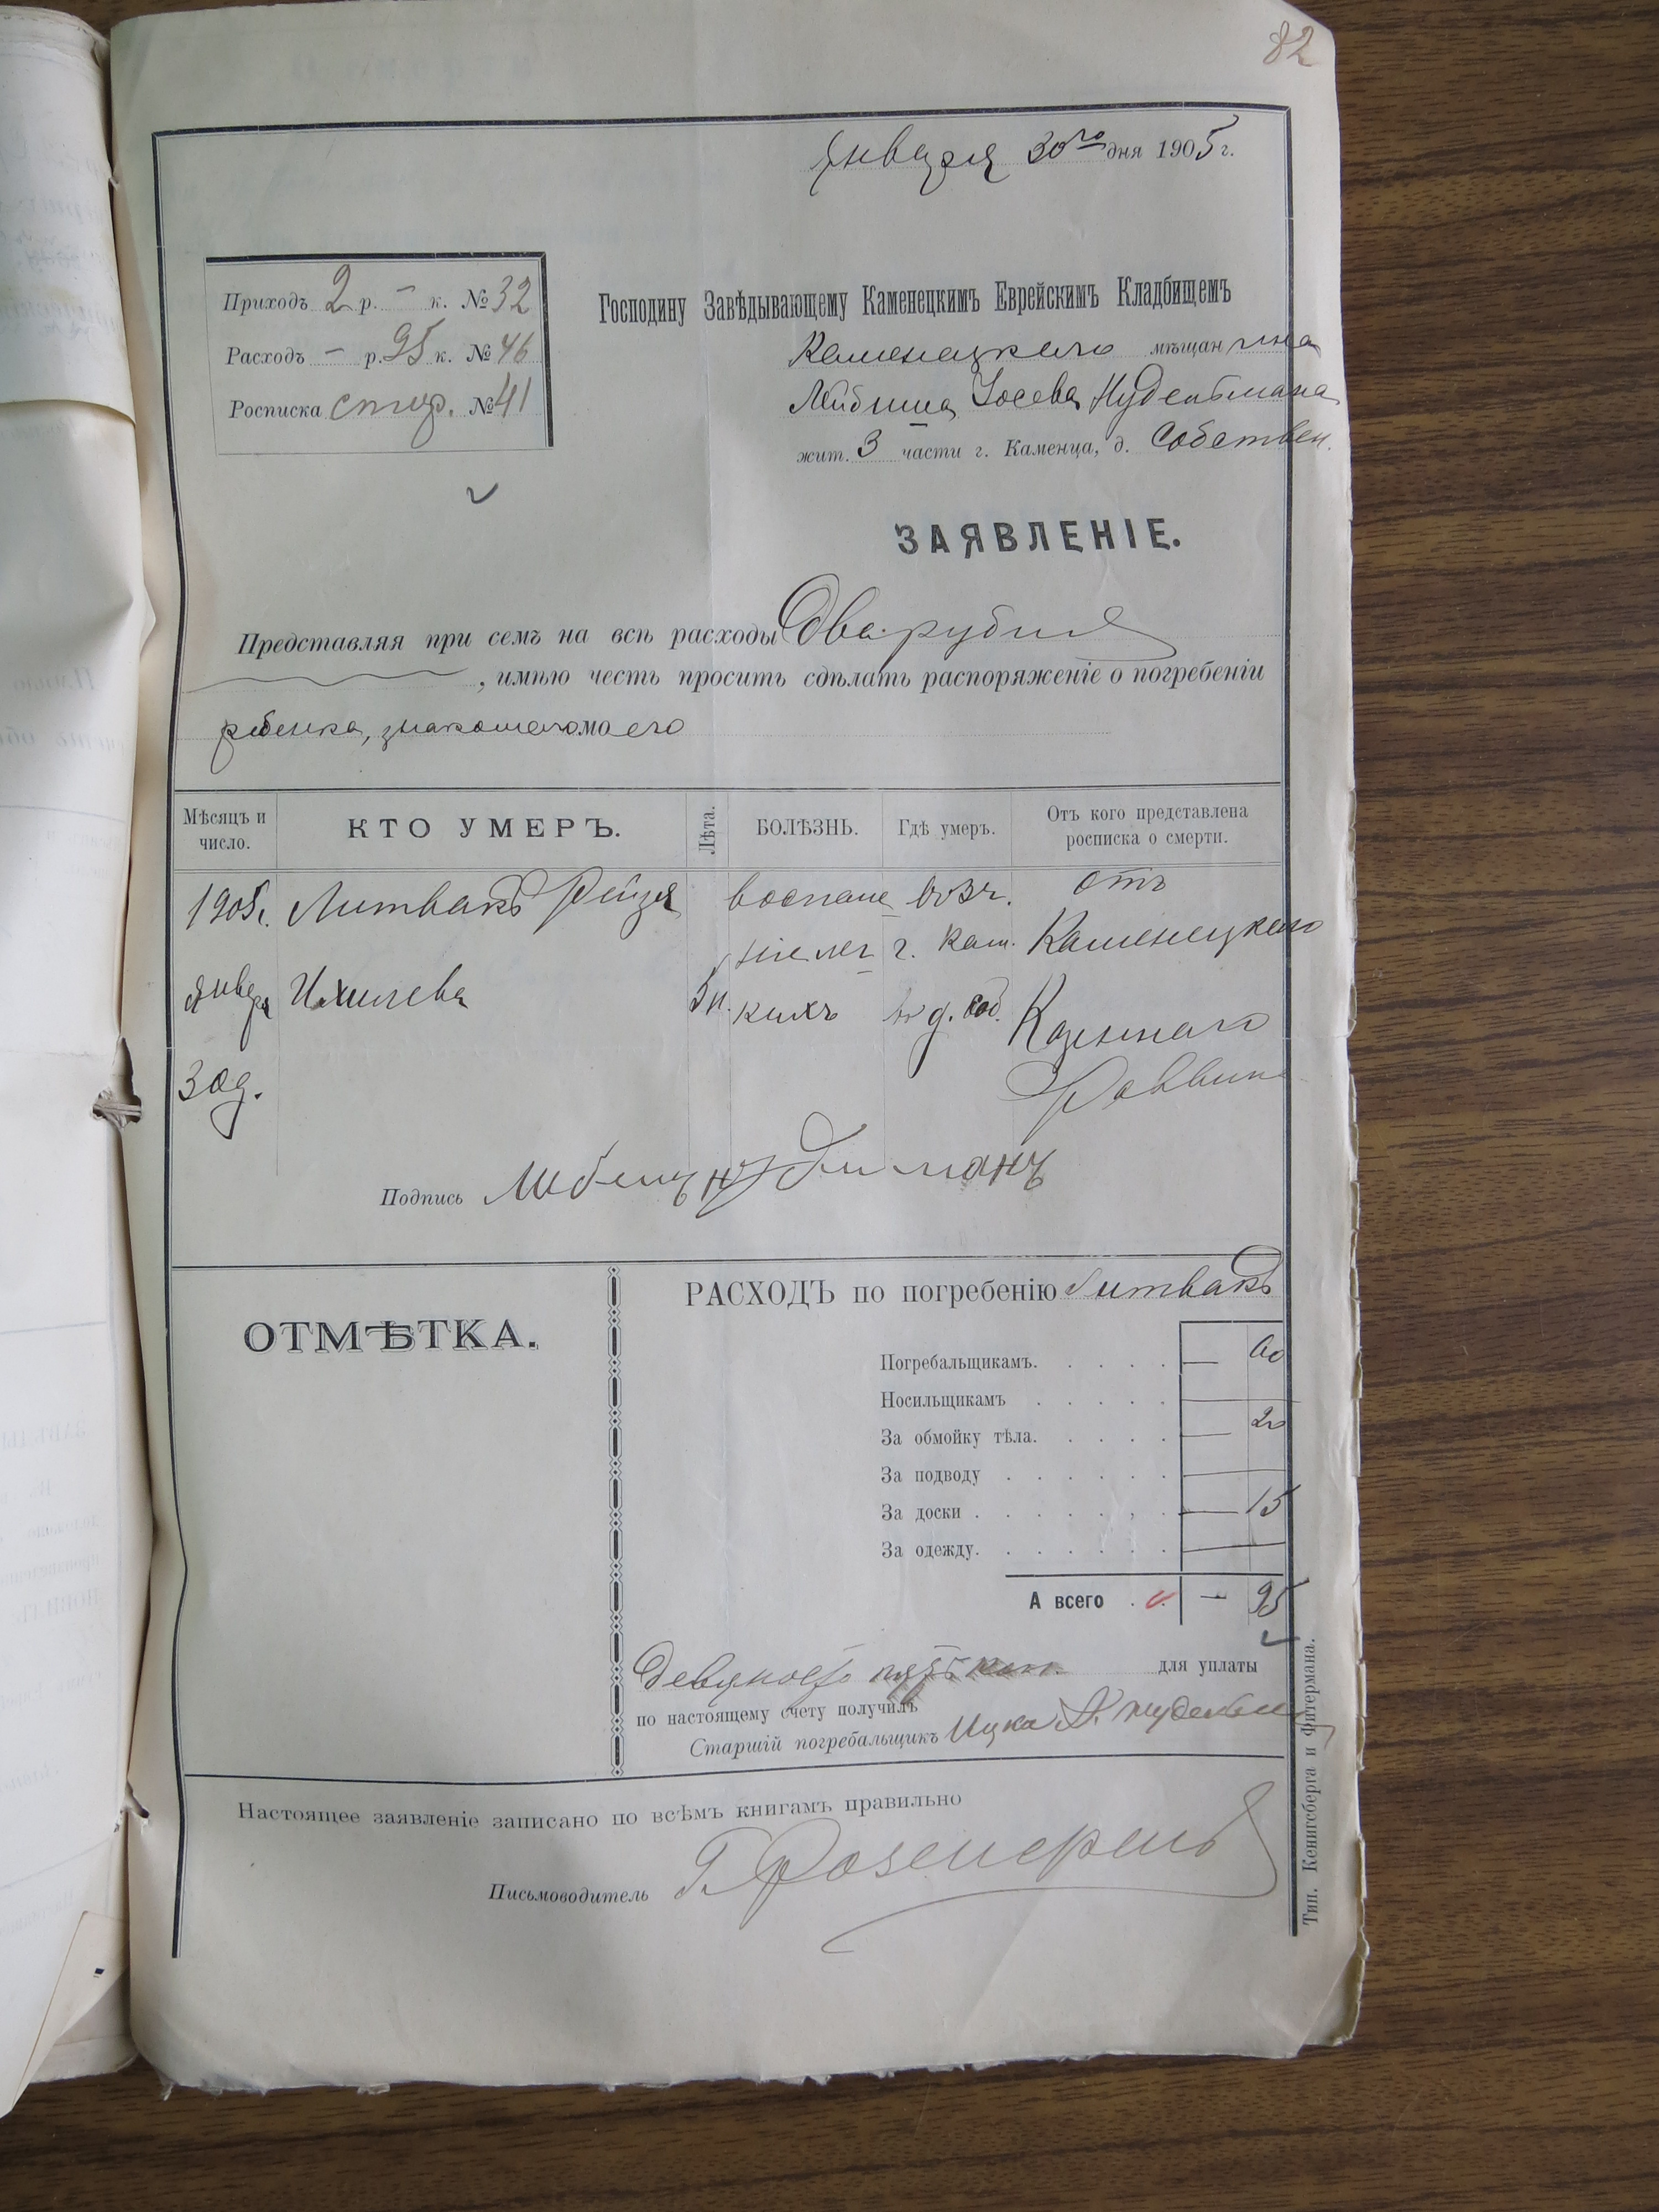 82
Января 30го дня 1905 г.
Приходъ 2 р. – к. № 32
Расходъ – р. 95 к. № 46
Росписка стор. № 41
Господину Завѣдывающему Каменецкимъ Еврейскимъ Кладбищемъ
Каменецкаго мѣщанина
Лейбиша Іосева Нудельмана
жит. 3 части г. Каменца, д. Собствен.
ЗАЯВЛЕНІЕ.
Представляя при семъ на всѣ расходы Два рубля
, имѣю честь просить сдѣлать распоряженіе о погребеніи
ребенка, знакомаго моего
Мѣсяцъ и число.
КТО УМЕРЪ.
Лѣта.
БОЛѢЗНЬ.
Гдѣ умеръ.
Отъ кого представлена росписка о смерти.
1905г. Литвакъ Рейзя воспале въ 3 ч. отъ
ніе лег г. Кам. Каменецкаго
Январ Ихилева 5 н. кихъ въ д. соб. Казеннаго
30 д. Раввин
Подпись Лейбишъ Нудельманъ
ОТМѢТКА.
РАСХОДЪ по погребенію Литвакъ
Погребальщикамъ. — 60
Носильщикамъ —
За обмойку тѣла. — 20
За подводу —
За доски — 15
За одежду. —
А всего — 95
Девяносто пять коп. для уплаты
по настоящему счету получилъ
Старшій погребальщикъ Ицко Нудельман
Настоящее заявленіе записано по всѣмъ книгамъ правильно
Письмоводитель
Тип. Кенигсберга и Фитермана.